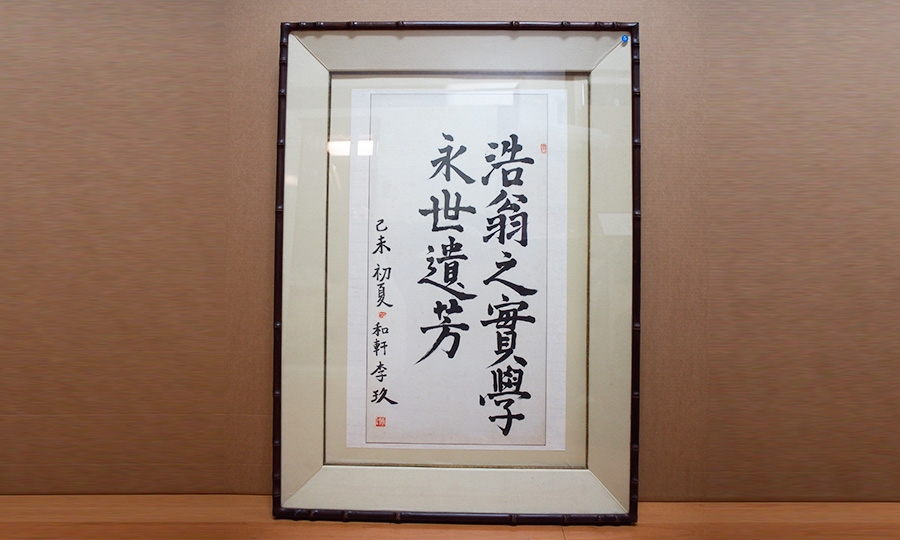 浩翁之實學
永世遺芳
己未初夏 和軒李玖